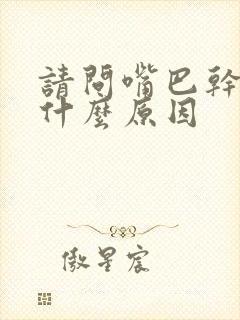 請問嘴巴幹
什麼原因
傲星宸